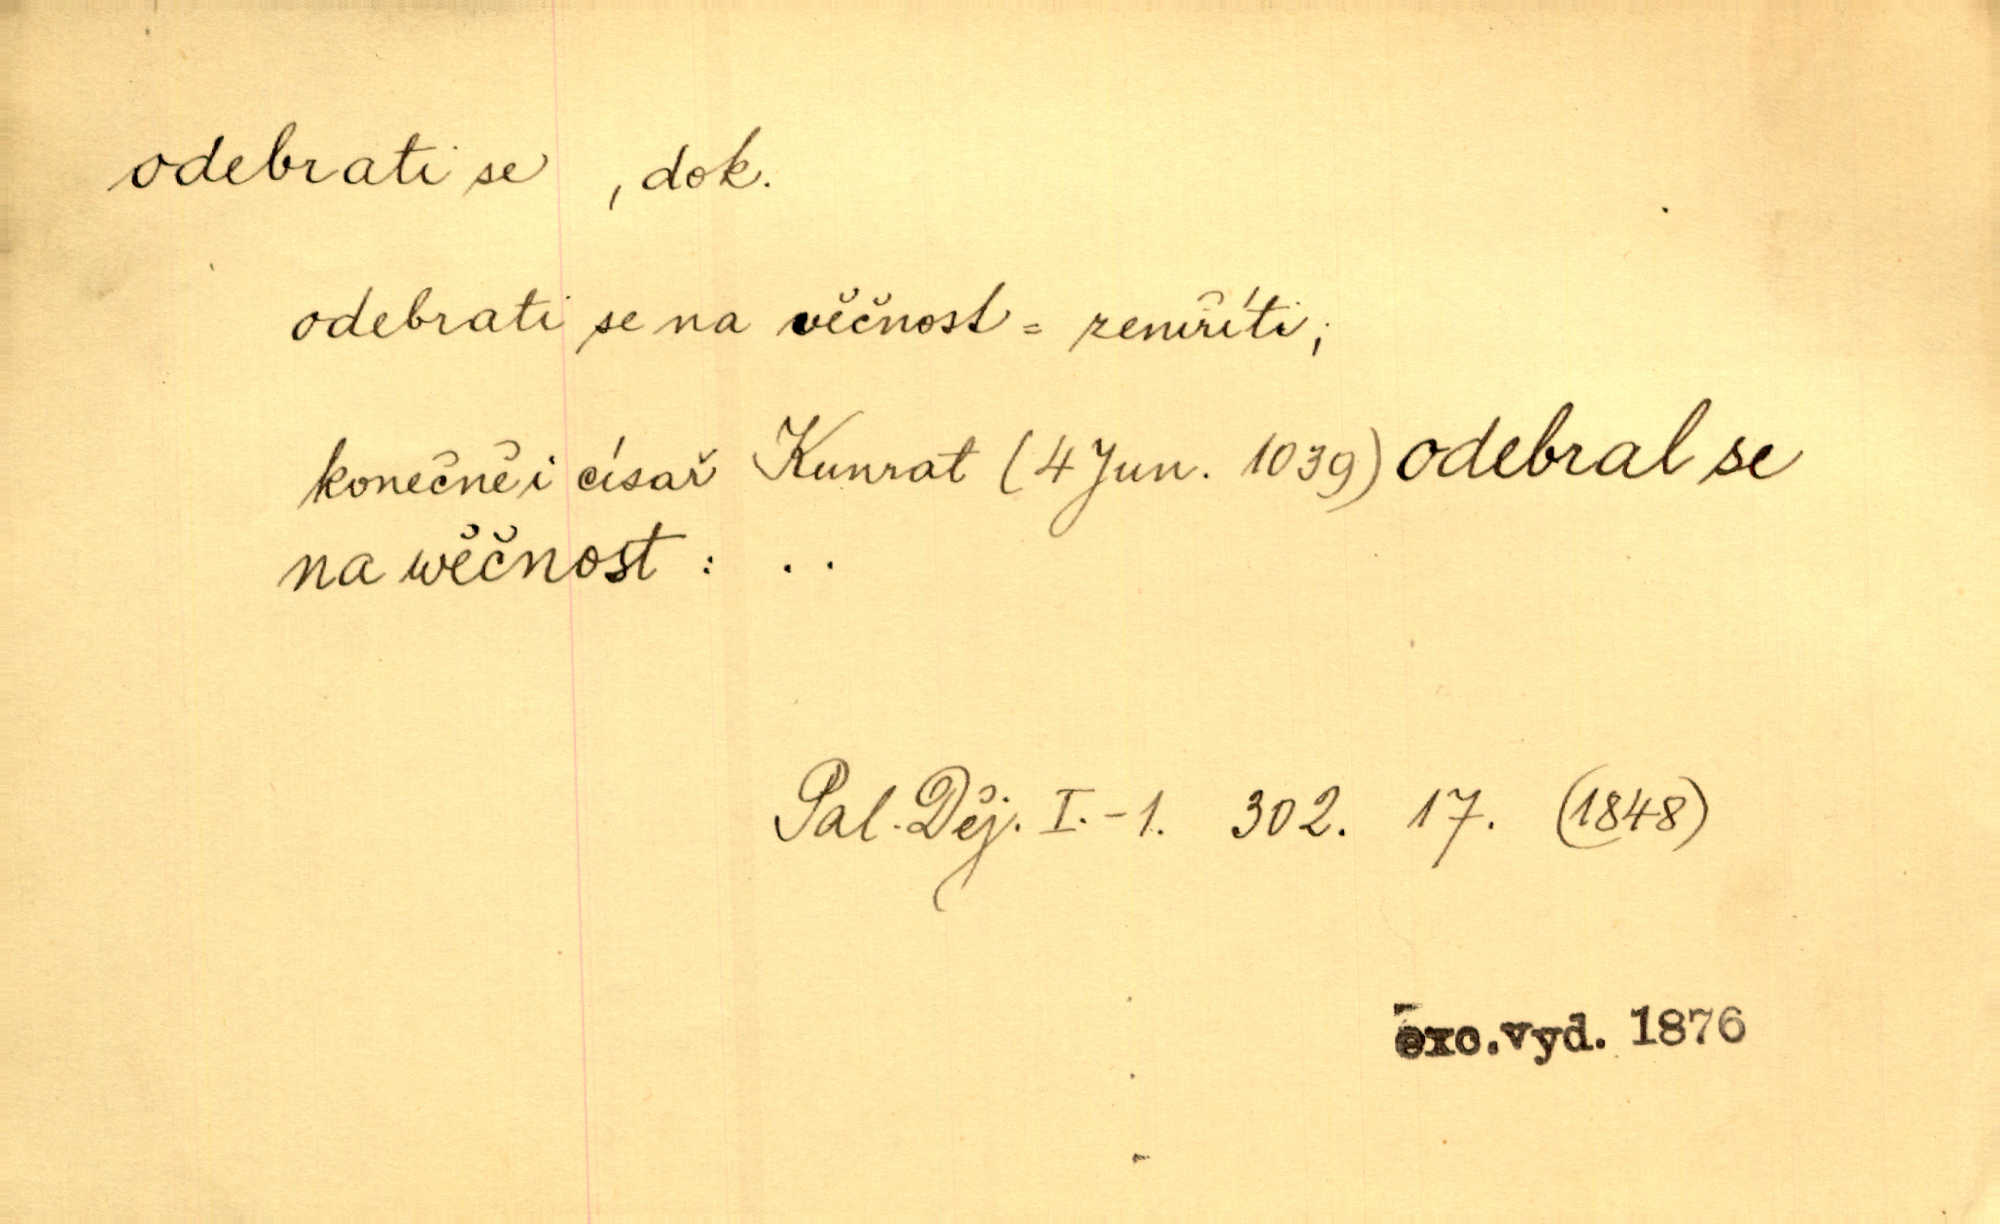 odebrati se , dok.
odebrati se na věčnost = zemříti;
konečně i císař Kunrat (4 Jun. 1039) odebral se
na wěčnost : . .
Pal. Děj. I.-1. 302. 17. (1848)
exc.vyd. 1876